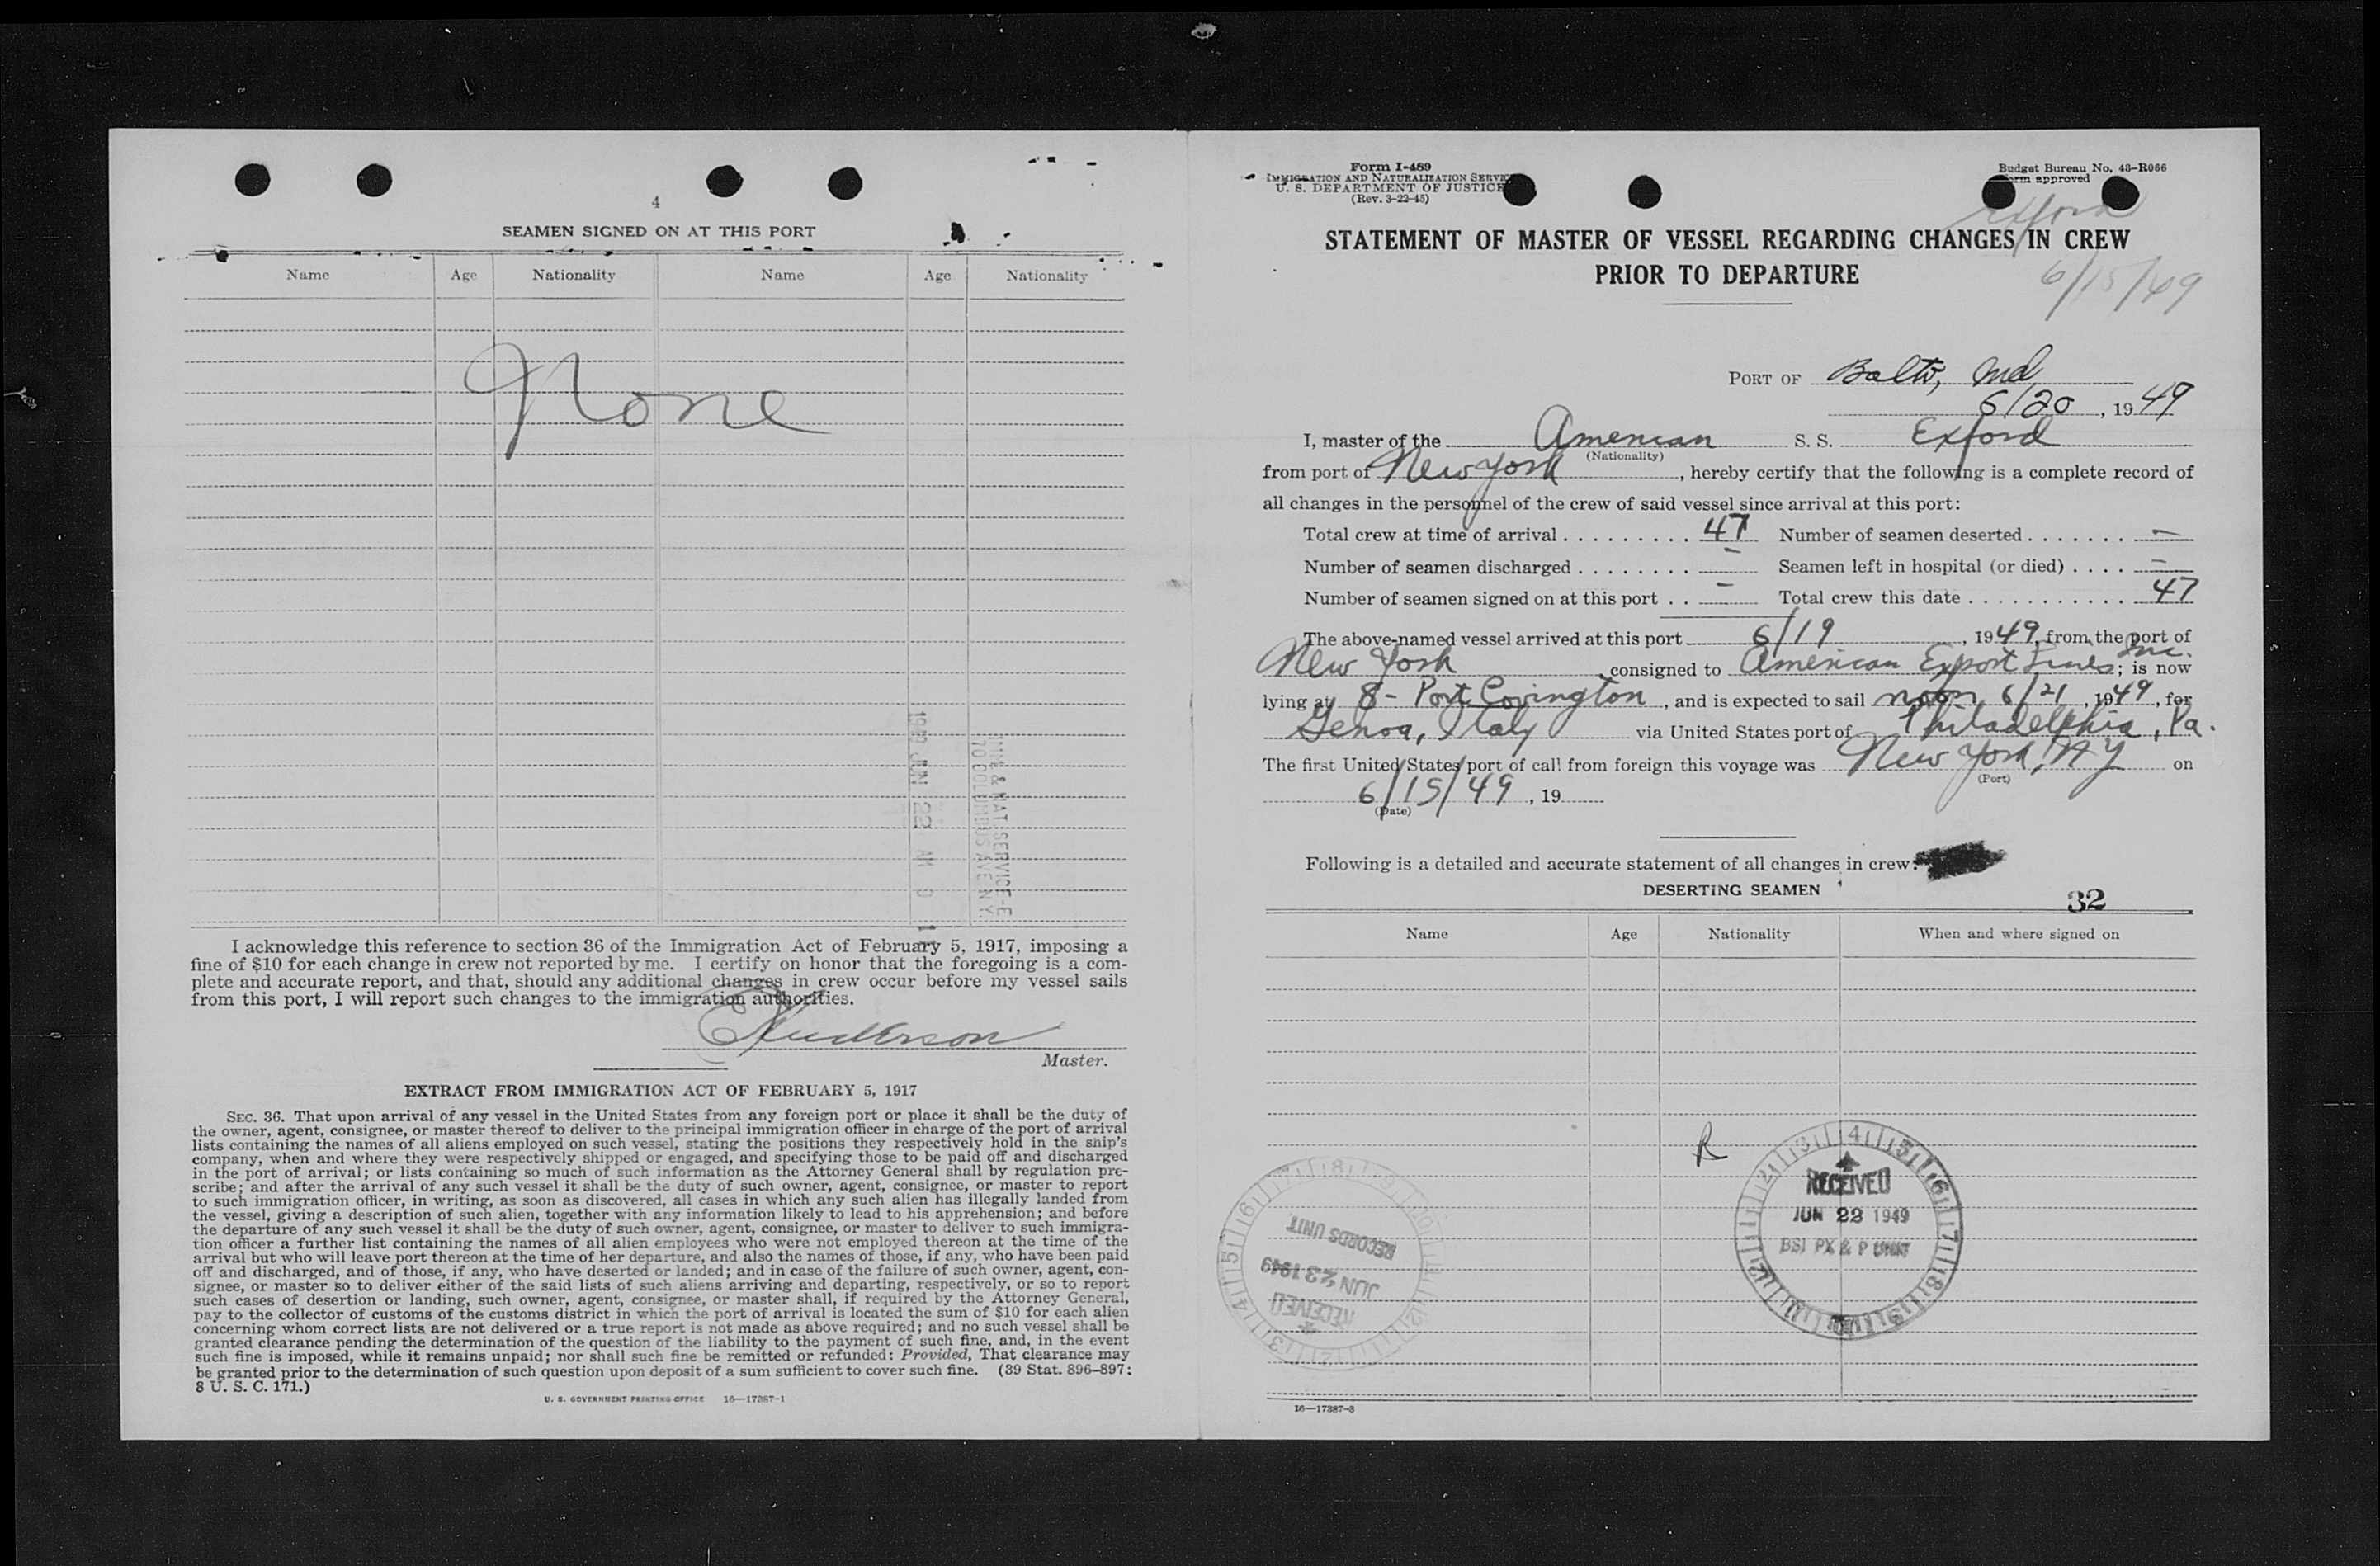 4
SEAMEN SIGNED ON AT THIS PORT
Name Age Nationality Name Age Nationality
None
INM. & NAT. SERVICE-E
70 COLUMBUS AVE N.Y.
JUN 22 AM 9 11
I acknowledge this reference to section 36 of the Immigration Act of February 5, 1917, imposing a
fine of $10 for each change in crew not reported by me. I certify on honor that the foregoing is a com-
plete and accurate report, and that, should any additional changes in crew occur before my vessel sails
from this port, I will report such changes to the immigration authorities.
Anderson
Master.
EXTRACT FROM IMMIGRATION ACT OF FEBRUARY 5, 1917
SEC. 36. That upon arrival of any vessel in the United States from any foreign port or place it shall be the duty of
the owner, agent, consignee, or master thereof to deliver to the principal immigration officer in charge of the port of arrival
lists containing the names of all aliens employed on such vessel, stating the positions they respectively hold in the ship's
company, when and where they were respectively shipped or engaged, and specifying those to be paid off and discharged
in the port of arrival; or lists containing so much of such information as the Attorney General shall by regulation pre-
scribe; and after the arrival of any such vessel it shall be the duty of such owner, agent, consignee, or master to report
to such immigration officer, in writing, as soon as discovered, all cases in which any such alien has illegally landed from
the vessel, giving a description of such alien, together with any information likely to lead to his apprehension; and before
the departure of any such vessel it shall be the duty of such owner, agent, consignee, or master to deliver to such immigra-
tion officer a further list containing the names of all alien employees who were not employed thereon at the time of the
arrival but who will leave port thereon at the time of her departure, and also the names of those, if any, who have been paid
off and discharged, and of those, if any, who have deserted or landed; and in case of the failure of such owner, agent, con-
signee, or master so to deliver either of the said lists of such aliens arriving and departing, respectively, or so to report
such cases of desertion or landing, such owner, agent, consignee, or master shall, if required by the Attorney General,
pay to the collector of customs of the customs district in which the port of arrival is located the sum of $10 for each alien
concerning whom correct lists are not delivered or a true report is not made as above required; and no such vessel shall be
granted clearance pending the determination of the question of the liability to the payment of such fine, and, in the event
such fine is imposed, while it remains unpaid; nor shall such fine be remitted or refunded: Provided, That clearance may
be granted prior to the determination of such question upon deposit of a sum sufficient to cover such fine. (39 Stat. 896-897;
8 U. S. C. 171.)
U. S. GOVERNMENT PRINTING OFFICE 16—17387-1
Form I-489
IMMIGRATION AND NATURALIZATION SERVICE
U. S. DEPARTMENT OF JUSTICE
(Rev. 3-22-45)
Budget Bureau No. 43-R066
Form approved
Exford
STATEMENT OF MASTER OF VESSEL REGARDING CHANGES IN CREW
PRIOR TO DEPARTURE
6/15/49
PORT OF Balto, Md
6/20, 1949
I, master of the American S. S. Exford
(Nationality)
from port of New York, hereby certify that the following is a complete record of
all changes in the personnel of the crew of said vessel since arrival at this port:
Total crew at time of arrival . . . . . . . . . 47 Number of seamen deserted . . . . . . . —
Number of seamen discharged . . . . . . . . — Seamen left in hospital (or died) . . . . —
Number of seamen signed on at this port . . — Total crew this date . . . . . . . . . . . . 47
The above-named vessel arrived at this port 6/19, 1949, from the port of
New York consigned to American Export Lines Inc.; is now
lying at 8 - Port Covington, and is expected to sail noon 6/21, 1949, for
Genoa, Italy via United States port of Philadelphia, Pa.
The first United States port of call from foreign this voyage was New York, NY on
(Port)
6/15/49, 19
(Date)
Following is a detailed and accurate statement of all changes in crew:
DESERTING SEAMEN
32
Name Age Nationality When and where signed on
R
RECEIVED
JUN 23 1949
RECORDS UNIT
RECEIVED
JUN 22 1949
BSI PX & P UNIT
16—17387-3